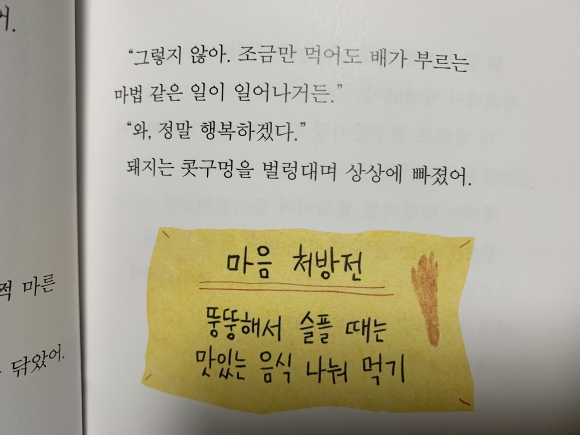 거.
“그렇지 않아. 조금만 먹어도 배가 부르는
마법 같은 일이 일어나거든.”
“와, 정말 행복하겠다.”
돼지는 콧구멍을 벌렁대며 상상에 빠졌어.
마음 처방전
뚱뚱해서 슬플 때는
맛있는 음식 나눠 먹기
적 마른
닦았어.